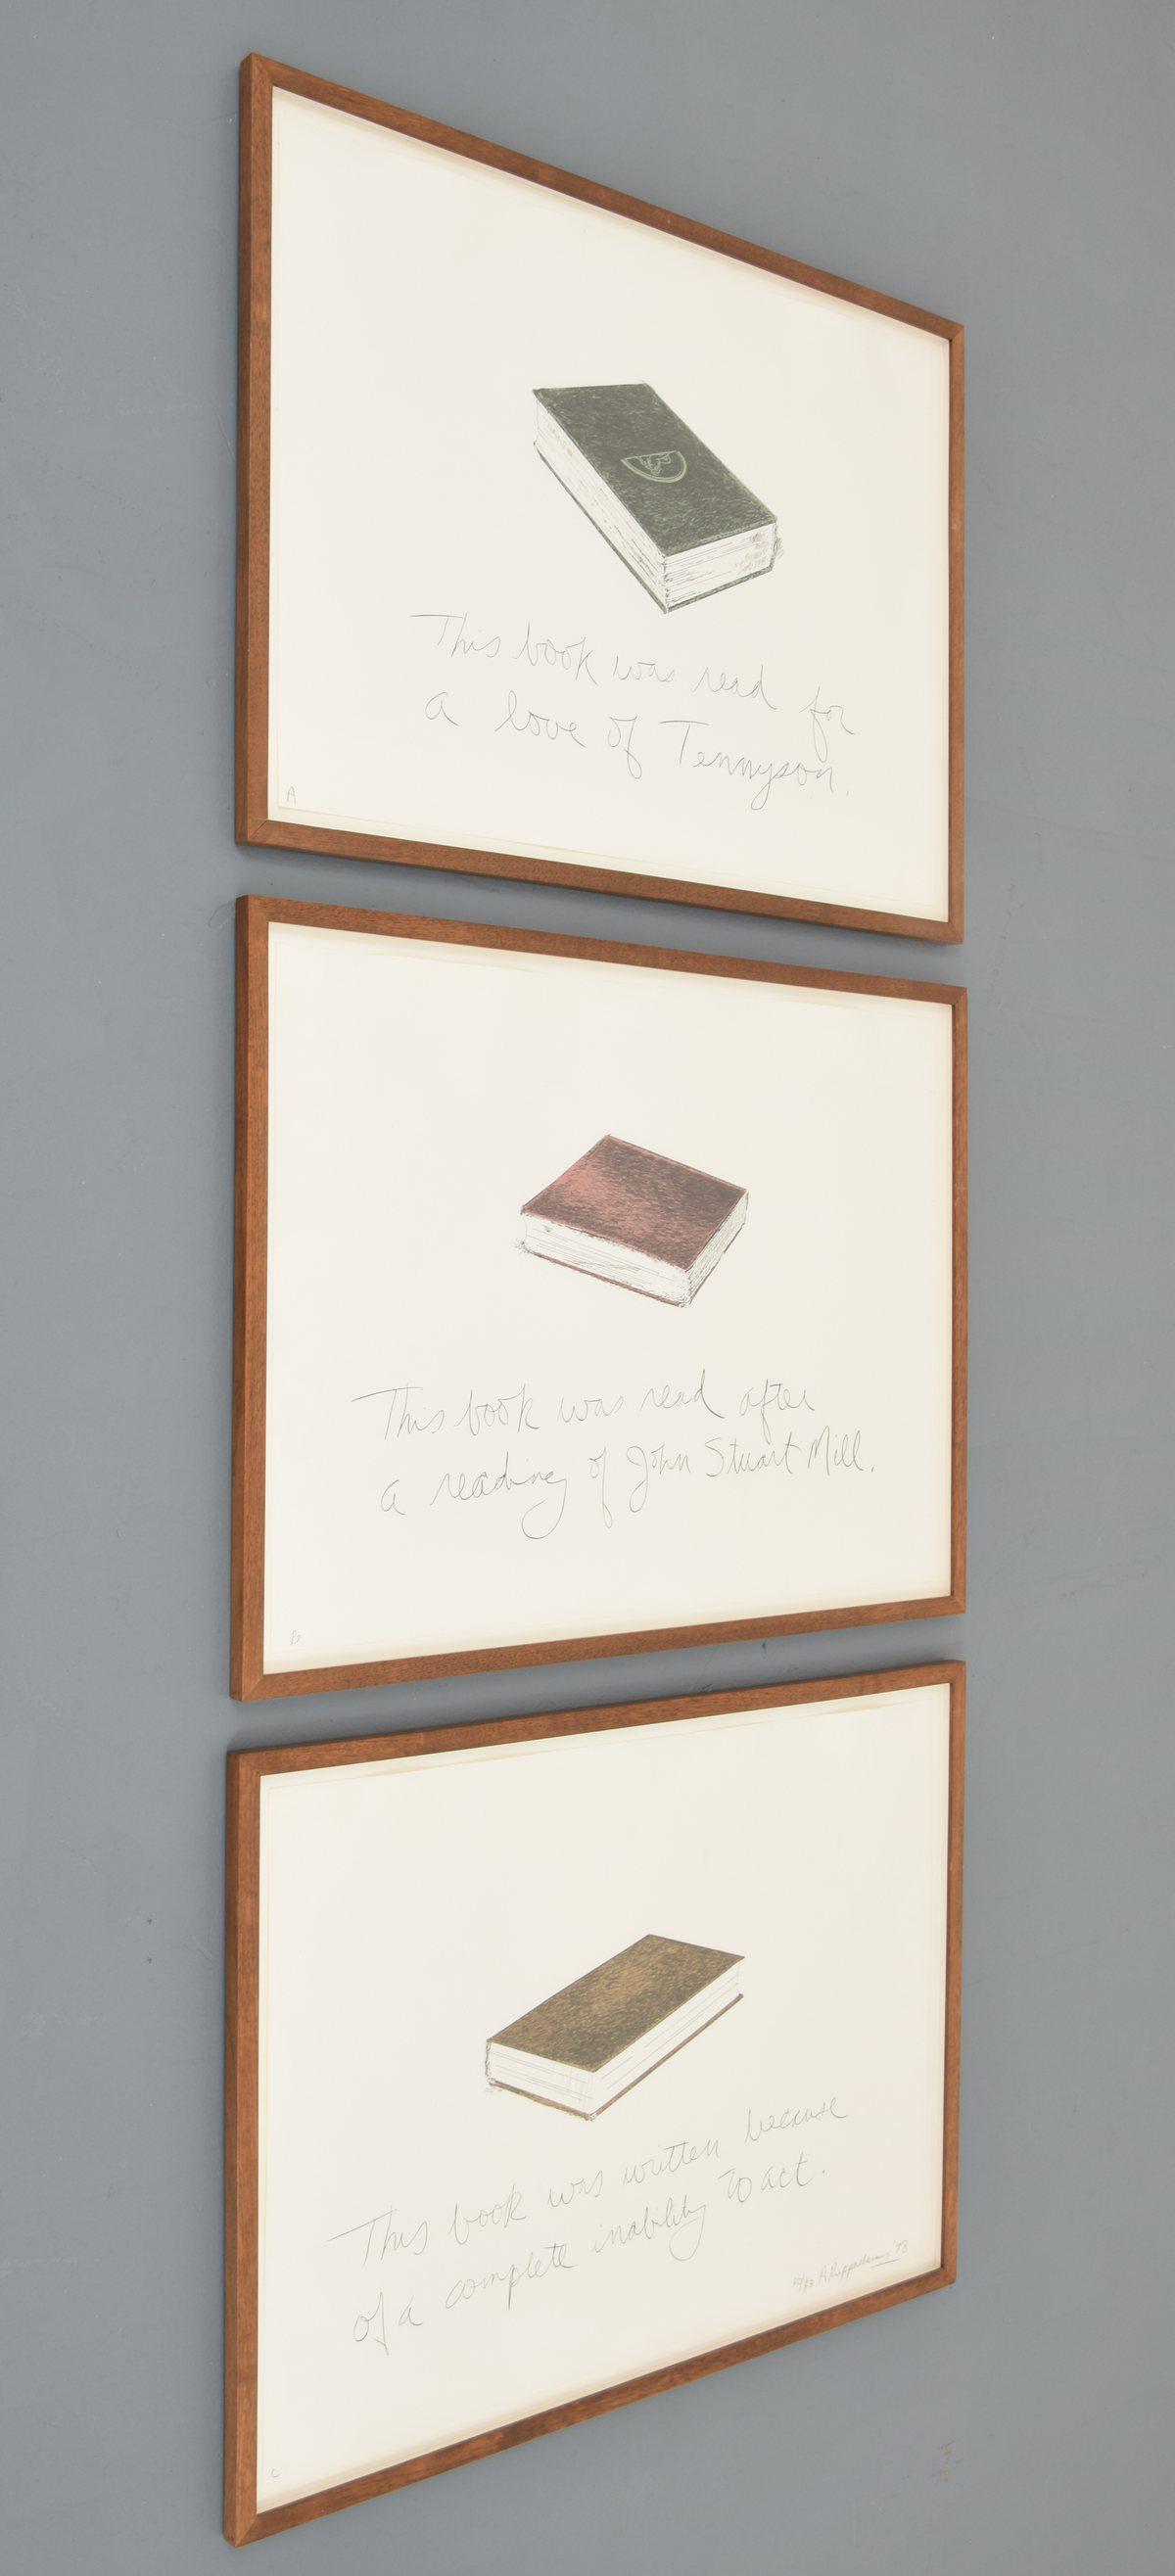 This book was read for
a love of Tennyson.
A
This book was read after
a reading of John Stuart Mill.
B
This book was written because
of a complete inability to act.
A. Ruppersberg '73
C